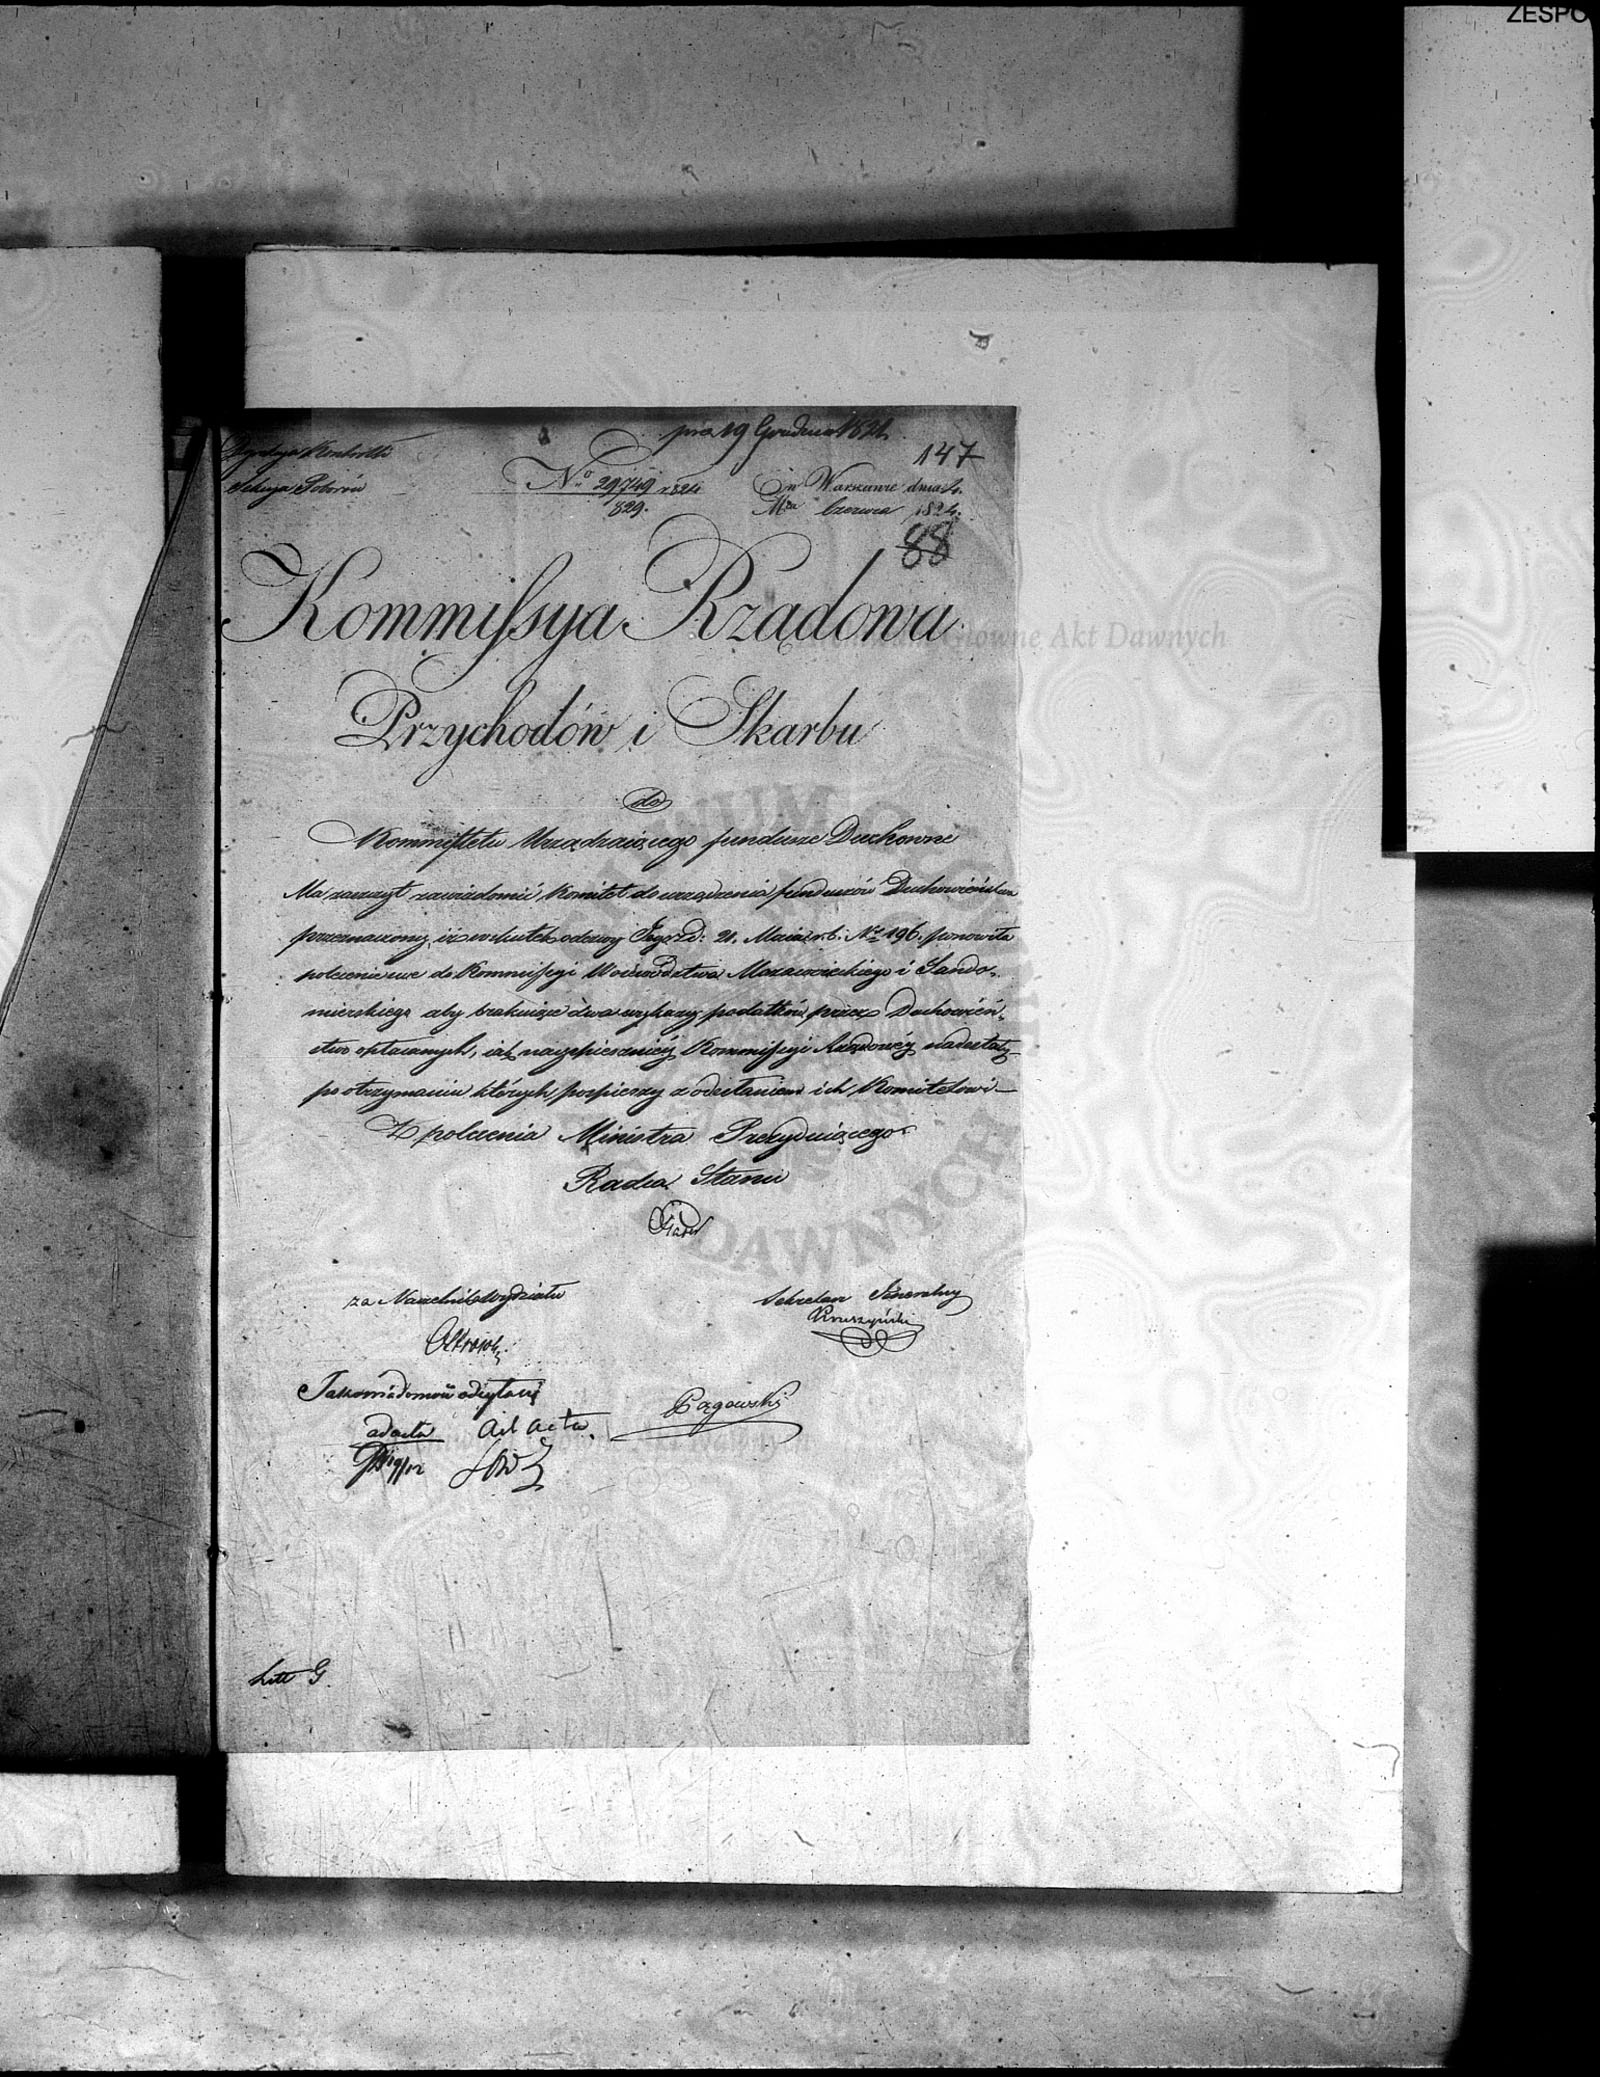 ZESPO
prez 19 Grudnia 1824
147
Dyrekcya Kontrolli
Sekcya Poborów
No. 29749 1824
829.
w Warszawie dnia 4.
Mca Czerwca 1824.
88
Kommissya Rządowa
Przychodów i Skarbu
do
Kommitetu Urządzaiącego fundusze Duchowne
Ma zaszczyt zawiadomić Komitet do urządzenia funduszów Duchowieństwa
przeznaczony, iż wskutek odezwy Jego z d: 21. Maia r.b. No 196. ponowiła
polecenie swe do Kommissyi Woiewództwa Mazowieckiego i Sando-
mierskiego aby brakuiące dwa wykazy podatków przez Duchowień-
stwo opłacanych, iak nayspieszniéy Kommissyi Rządowéy nadesłały
po otrzymaniu których pospieszy z odesłaniem ich Komitetowi—
Z polecenia Ministra Prezyduiącego
Radca Stanu
za Naczelnik Wydziału
Sekretarz Jeneralny
Kruszyński
Ta wiadomość odczytana
ad acta ad acta
19/12
Pągowski
Litt G.
Główne Akt Dawnych
DAWNYCH